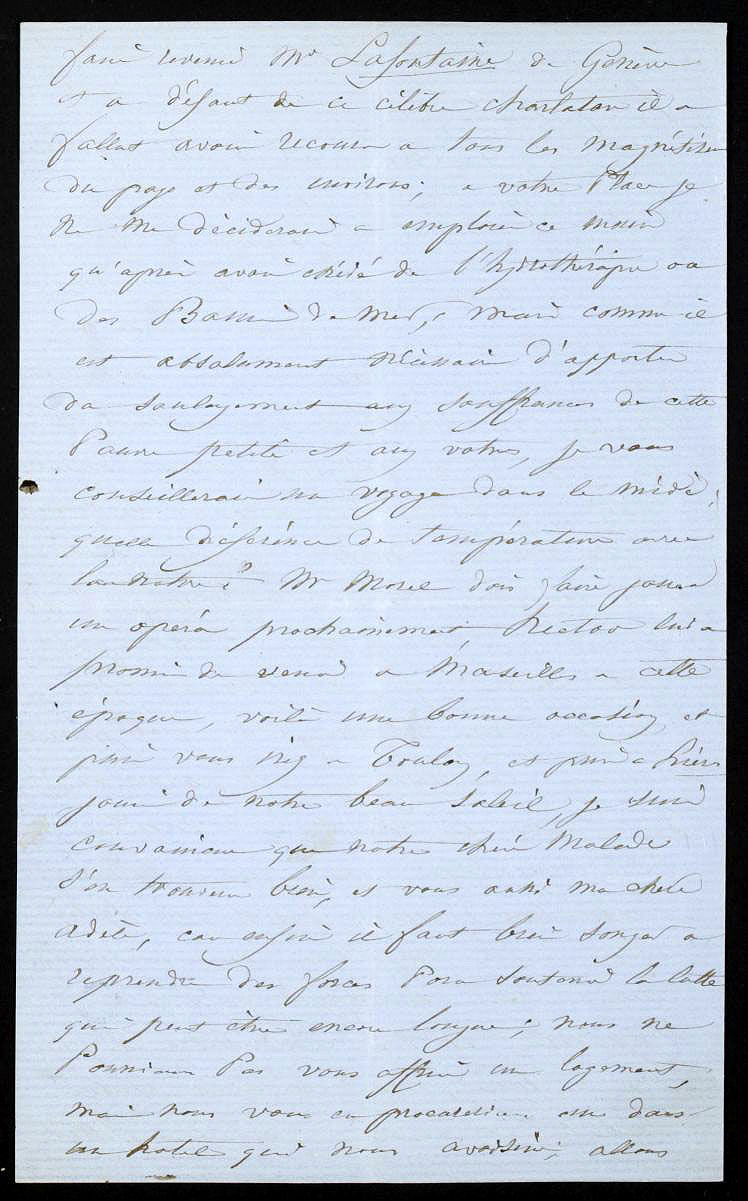 faire revenir Mr Lafontaine de Genève
et a défaut de ce célèbre charlatan il a
fallut avoir recour a tous les magnétiseur
du pays et des environs; a votre Place je
ne me déciderai a emploier ce moien
qu'après avoir éssié de l'hydrothérapie ou
des Bains de mer, mais comme il
est absolument nécéssaire d'apporter
du soulagement aux souffrances de cette
Pauvre petite et aux votres, je vous
conseillerai un voyage dans le midi,
quelle diférence de température avec
la notre? Mr Morel dois faire jouer
un opéra prochainement, hector lui a
promis de venir a Marseilles a cette
époque, voilà une bonne occasion, et
puis vous irez a Toulon, et puis a hières
jouir de notre beau soleil, je suis
convaincue que notre chère Malade
s'en trouvera bien, et vous aussi ma chère
adèle, car enfin il faut bien songer a
reprendre des forces Pour soutenir la lutte
qui peut être encore longue; nous ne
Pourrions Pas vous offrir un logement,
mais nous vous en procurerions un dans
un hotel qui nous avoisine, allons